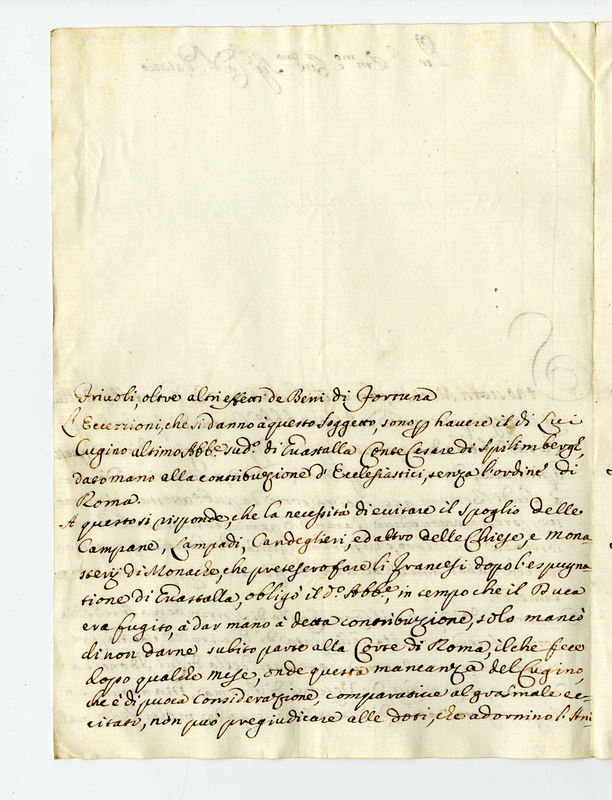 Friuoli, oltre altri effetti de Beni di Fortuna
L'Eccezzioni, che si danno à questo soggetto, sono p hauere il di Lui
Cugino ultimo Abb.e sud.o di Guastalla Conte Cesare di Spilimbergh,
dato mano alla contribuzione d' Ecclesiastici, senza l'ordine di
Roma.
A questo si risponde, che la necessità di euitare il spoglio delle
Campane, Lampadi, Candeglieri, ed altro delle Chiese, e Mona
sterij di Monache, che pretesero fare li Francesi dopo l'espugna
tione di Guastalla, obligò il d.o Abb.e, in tempo che il Duca
era fugito, à dar mano à detta contribuzione, solo mancò
di non darne subito parte alla Corte di Roma, il che fece
dopo qualche mese, onde questa mancanza del Cugino,
che è di puoca considerazione, comparatiue al gras male ec-
citato, non può pregiudicare alle doti, che adornino l'Ani